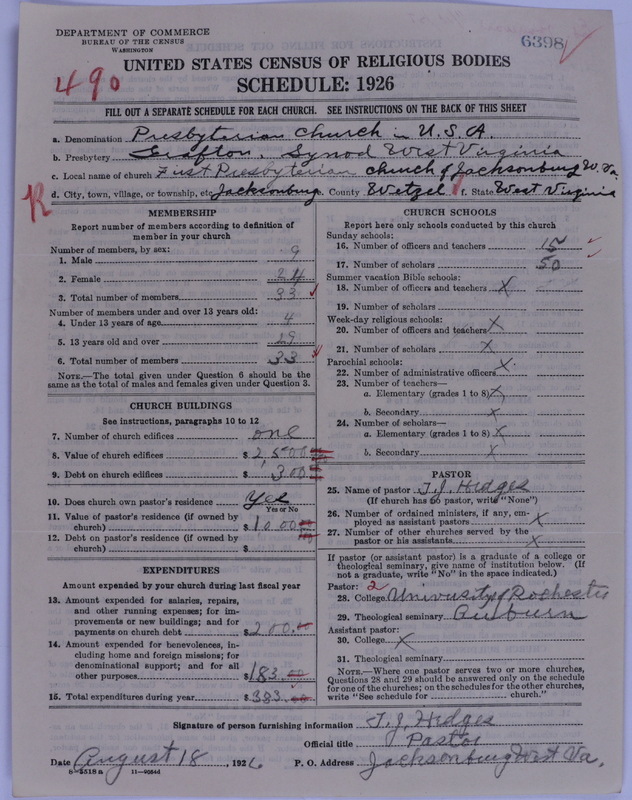 DEPARTMENT OF COMMERCE
BUREAU OF THE CENSUS
WASHINGTON
6398
UNITED STATES CENSUS OF RELIGIOUS BODIES
SCHEDULE: 1926
490
FILL OUT A SEPARATE SCHEDULE FOR EACH CHURCH. SEE INSTRUCTIONS ON THE BACK OF THIS SHEET
a. Denomination Presbyterian Church in U.S.A.
b. Presbytery Grafton, Synod West Virginia
c. Local name of church First Presbyterian church of Jacksonburg W. Va.
d. City, town, village, or township, etc. Jacksonburg e. County Wetzel f. State West Virginia
R
MEMBERSHIP
Report number of members according to definition of member in your church
Number of members, by sex:
1. Male 9
2. Female 24
3. Total number of members 33
Number of members under and over 13 years old:
4. Under 13 years of age 4
5. 13 years old and over 29
6. Total number of members 33
NOTE.—The total given under Question 6 should be the same as the total of males and females given under Question 3.
CHURCH BUILDINGS
See instructions, paragraphs 10 to 12
7. Number of church edifices one
8. Value of church edifices $2,500
9. Debt on church edifices $300
10. Does church own pastor's residence Yes
Yes or No
11. Value of pastor's residence (if owned by church) $1000
12. Debt on pastor's residence (if owned by church) $
EXPENDITURES
Amount expended by your church during last fiscal year
13. Amount expended for salaries, repairs, and other running expenses; for improvements or new buildings; and for payments on church debt $200.00
14. Amount expended for benevolences, including home and foreign missions; for denominational support; and for all other purposes $183.00
15. Total expenditures during year $383.00
CHURCH SCHOOLS
Report here only schools conducted by this church
Sunday schools:
16. Number of officers and teachers 15
17. Number of scholars 50
Summer vacation Bible schools:
18. Number of officers and teachers X
19. Number of scholars
Week-day religious schools:
20. Number of officers and teachers X
21. Number of scholars X
Parochial schools:
22. Number of administrative officers X
23. Number of teachers—
a. Elementary (grades 1 to 8) X
b. Secondary X
24. Number of scholars—
a. Elementary (grades 1 to 8) X
b. Secondary X
PASTOR
25. Name of pastor T. J. Hedges
(If church has no pastor, write "None")
26. Number of ordained ministers, if any, employed as assistant pastors X
27. Number of other churches served by the pastor or his assistants X
If pastor (or assistant pastor) is a graduate of a college or theological seminary, give name of institution below. (If not a graduate, write "No" in the space indicated.)
Pastor: 2
28. College University of Rochester
29. Theological seminary Auburn
Assistant pastor:
30. College X
31. Theological seminary
NOTE.—Where one pastor serves two or more churches, Questions 28 and 29 should be answered only on the schedule for one of the churches; on the schedules for the other churches, write "See schedule for church."
Signature of person furnishing information T. J. Hedges
Official title Pastor
Date August 18, 1926 P. O. Address Jacksonburg West Va.
8—5518a 11—9054d